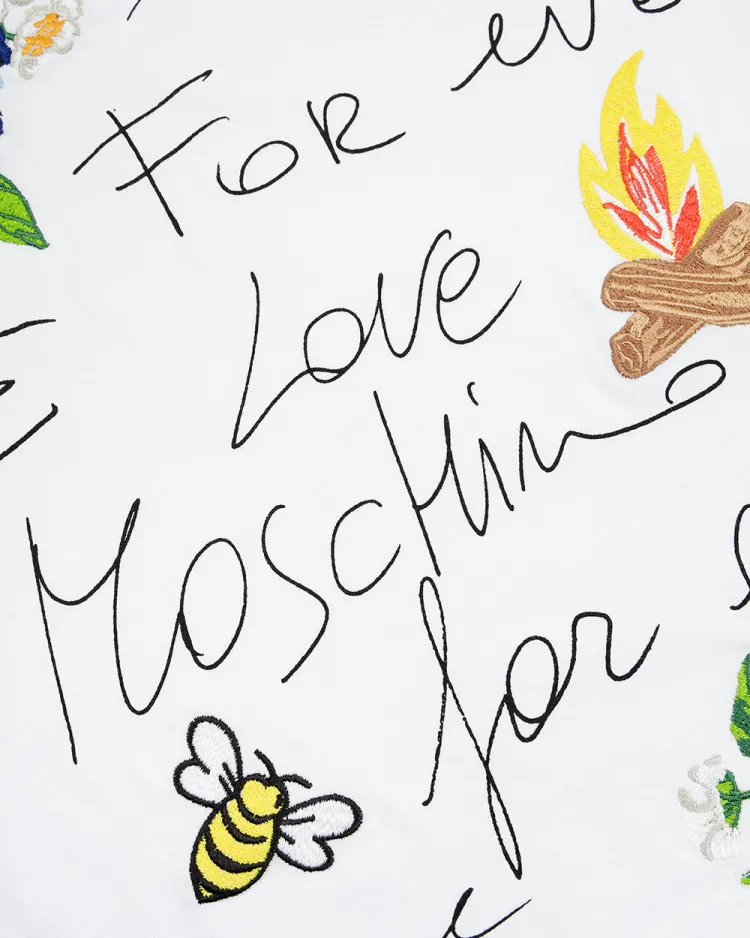 For eve
Love
Moschino
for